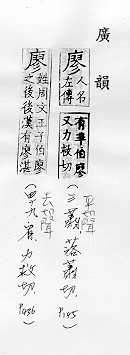 廣韻
廖 人名左傳
有辛伯廖又力救切
平聲
(三蕭 落蕭切 P145)
廖 姓周文王子伯廖
之後後漢有廖湛
去聲
(四九宥 力救切 P436)